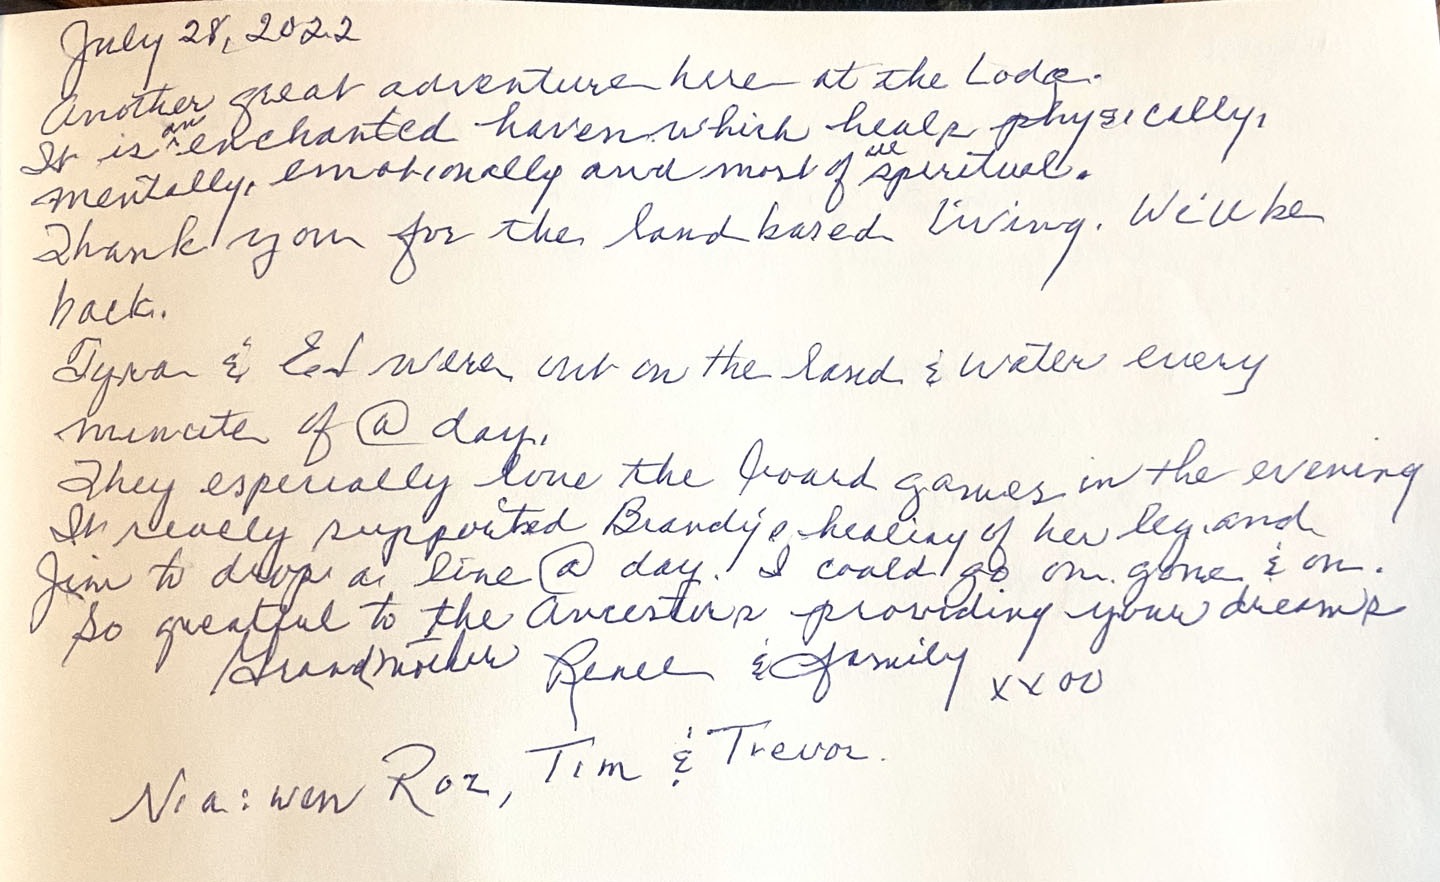 July 28, 2022
Another great adventure here at the Lodge.
It is an enchanted haven which heals physically,
mentally, emotionally and most of all spiritual.
Thank you for the land based living. Will be
back.
& Ed were out on the land & water every
minute of @ day.
They especially love the board games in the evening
It really supported Brandy's healing of her leg and
Jim to drop a line @ day. I could go on gone & on.
So greatful to the Ancestors providing your dreams
Grandmother Renee & family xxoo
Nia:wen Roz, Tim & Trevor.